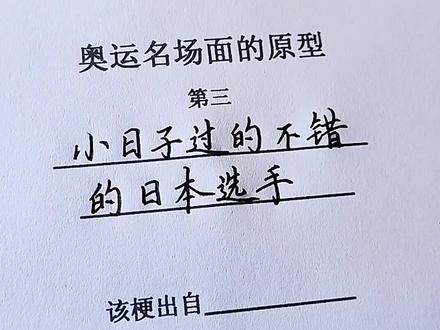 奥运名场面的原型
第三
小日子过的不错
的日本选手
该梗出自